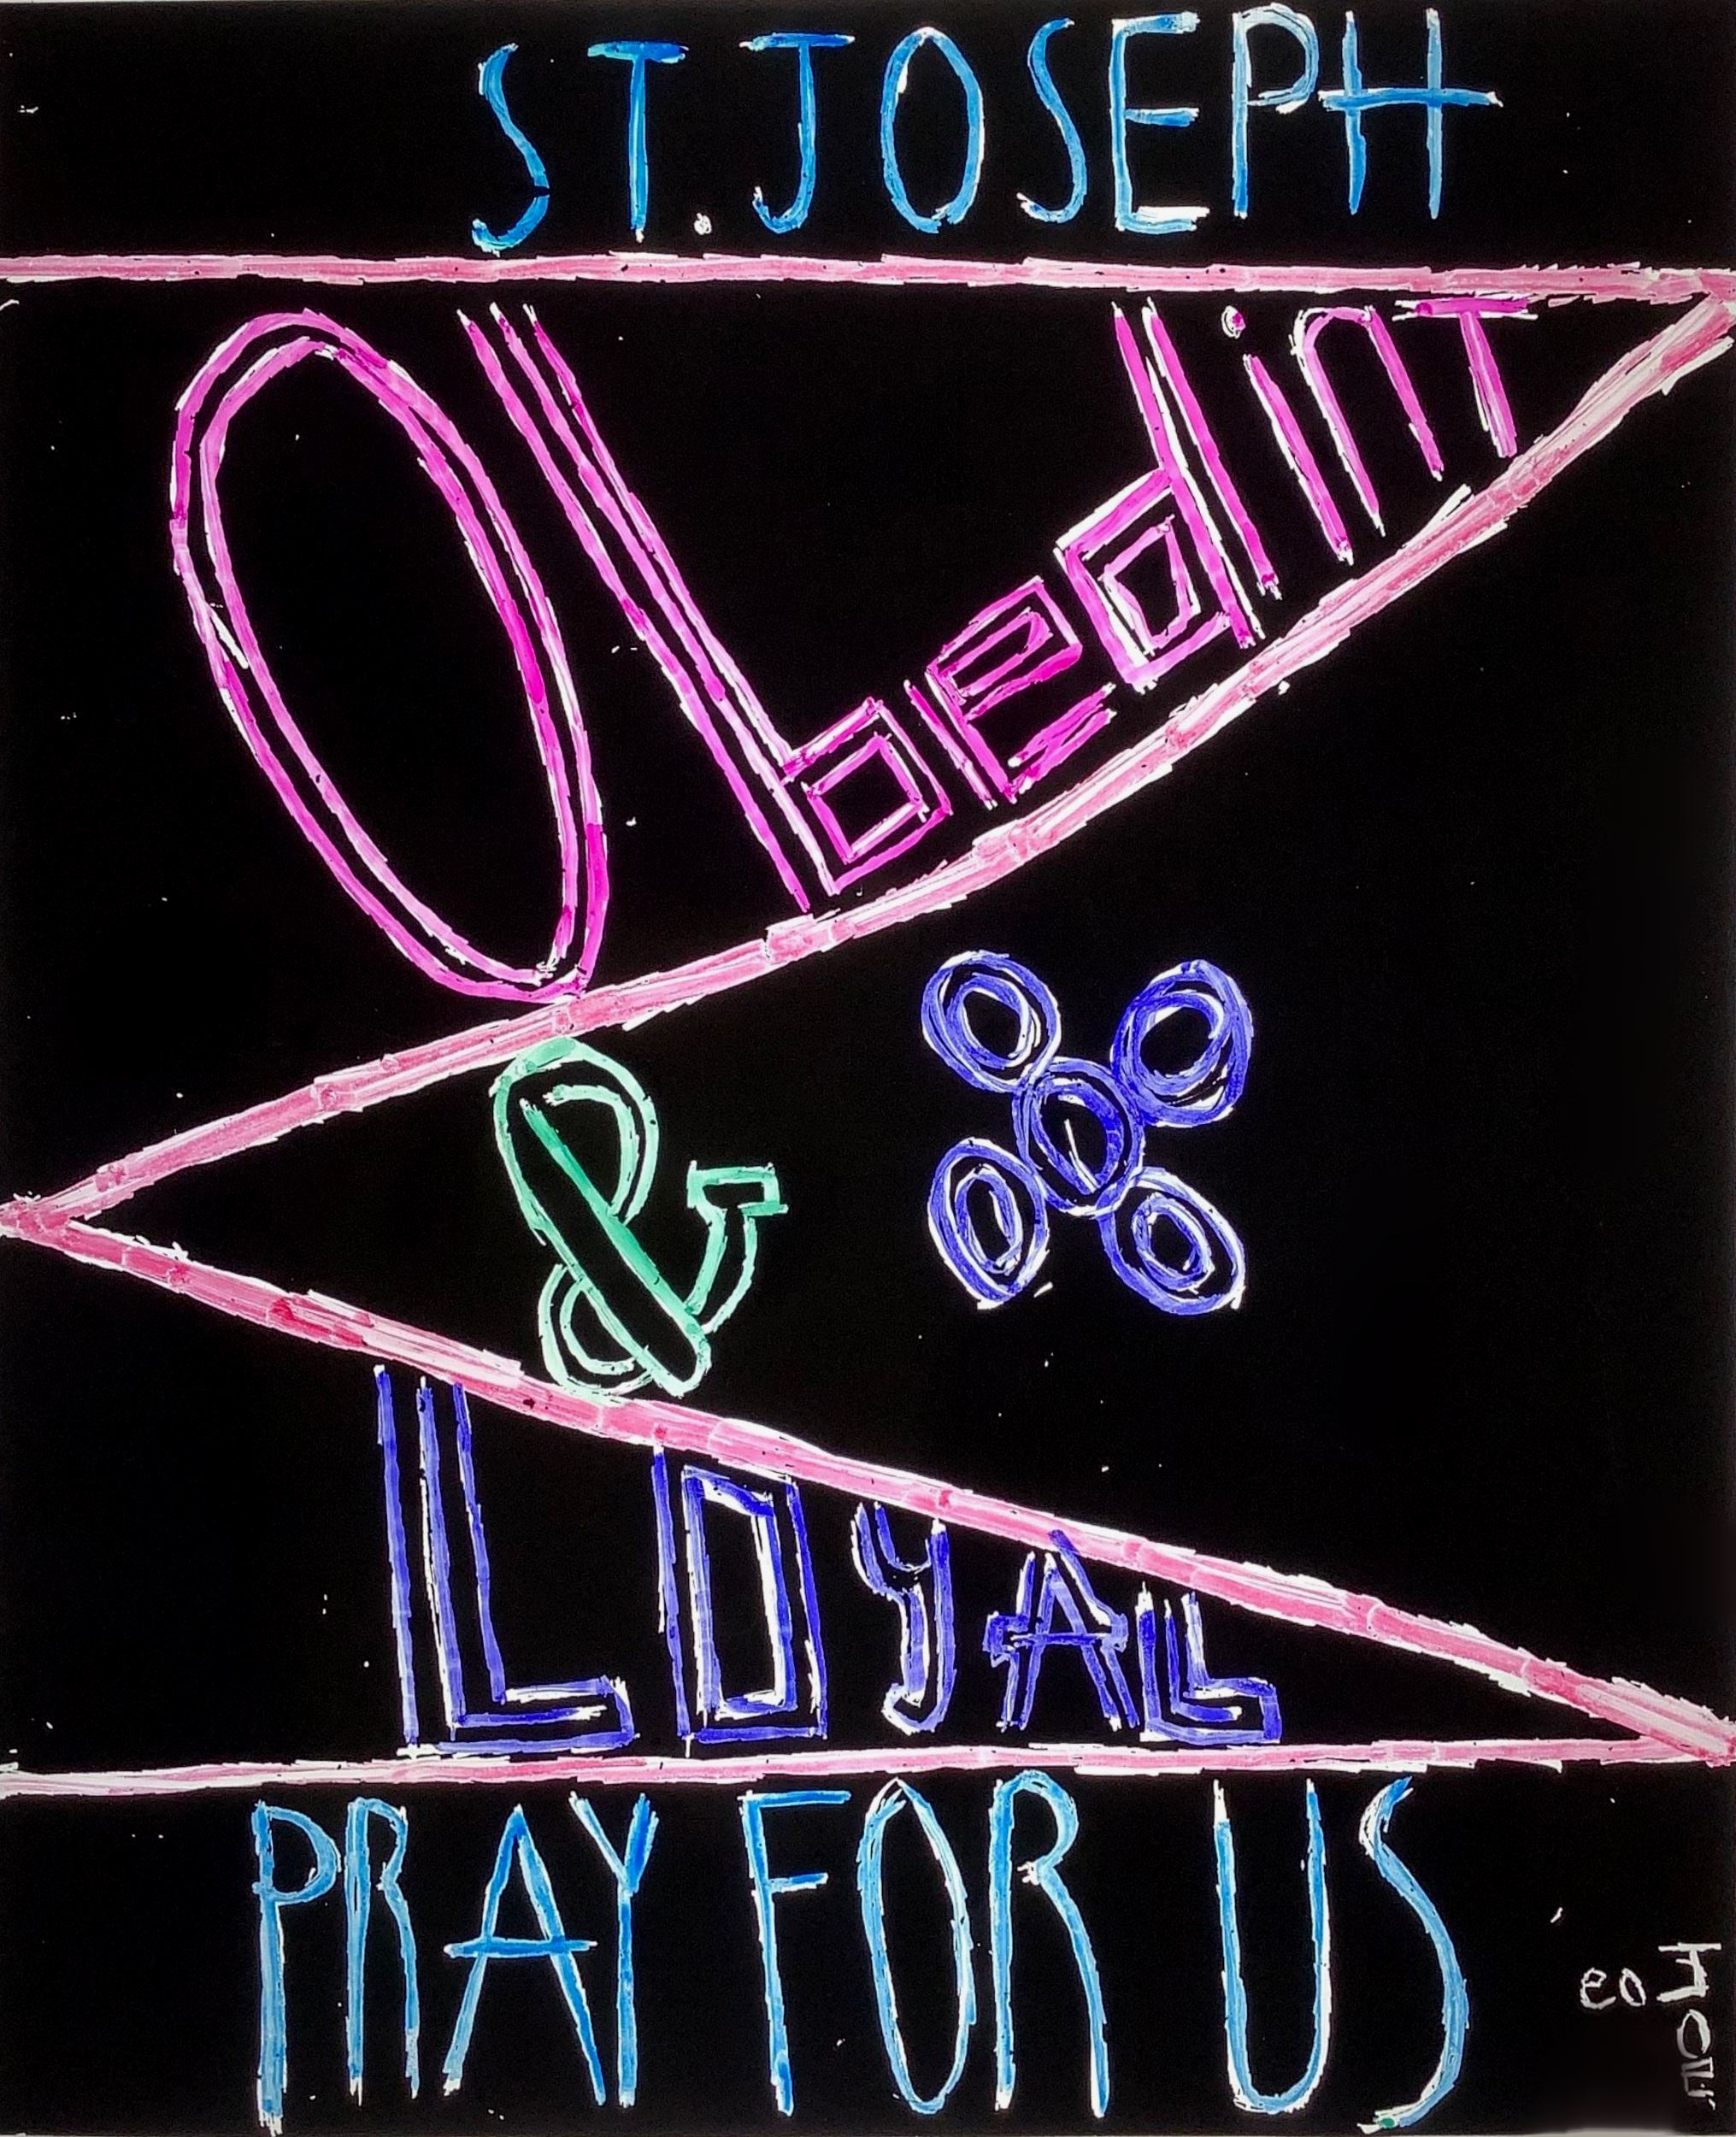 ST. JOSEPH
ObedinT
&
LOyAL
PRAY FOR US